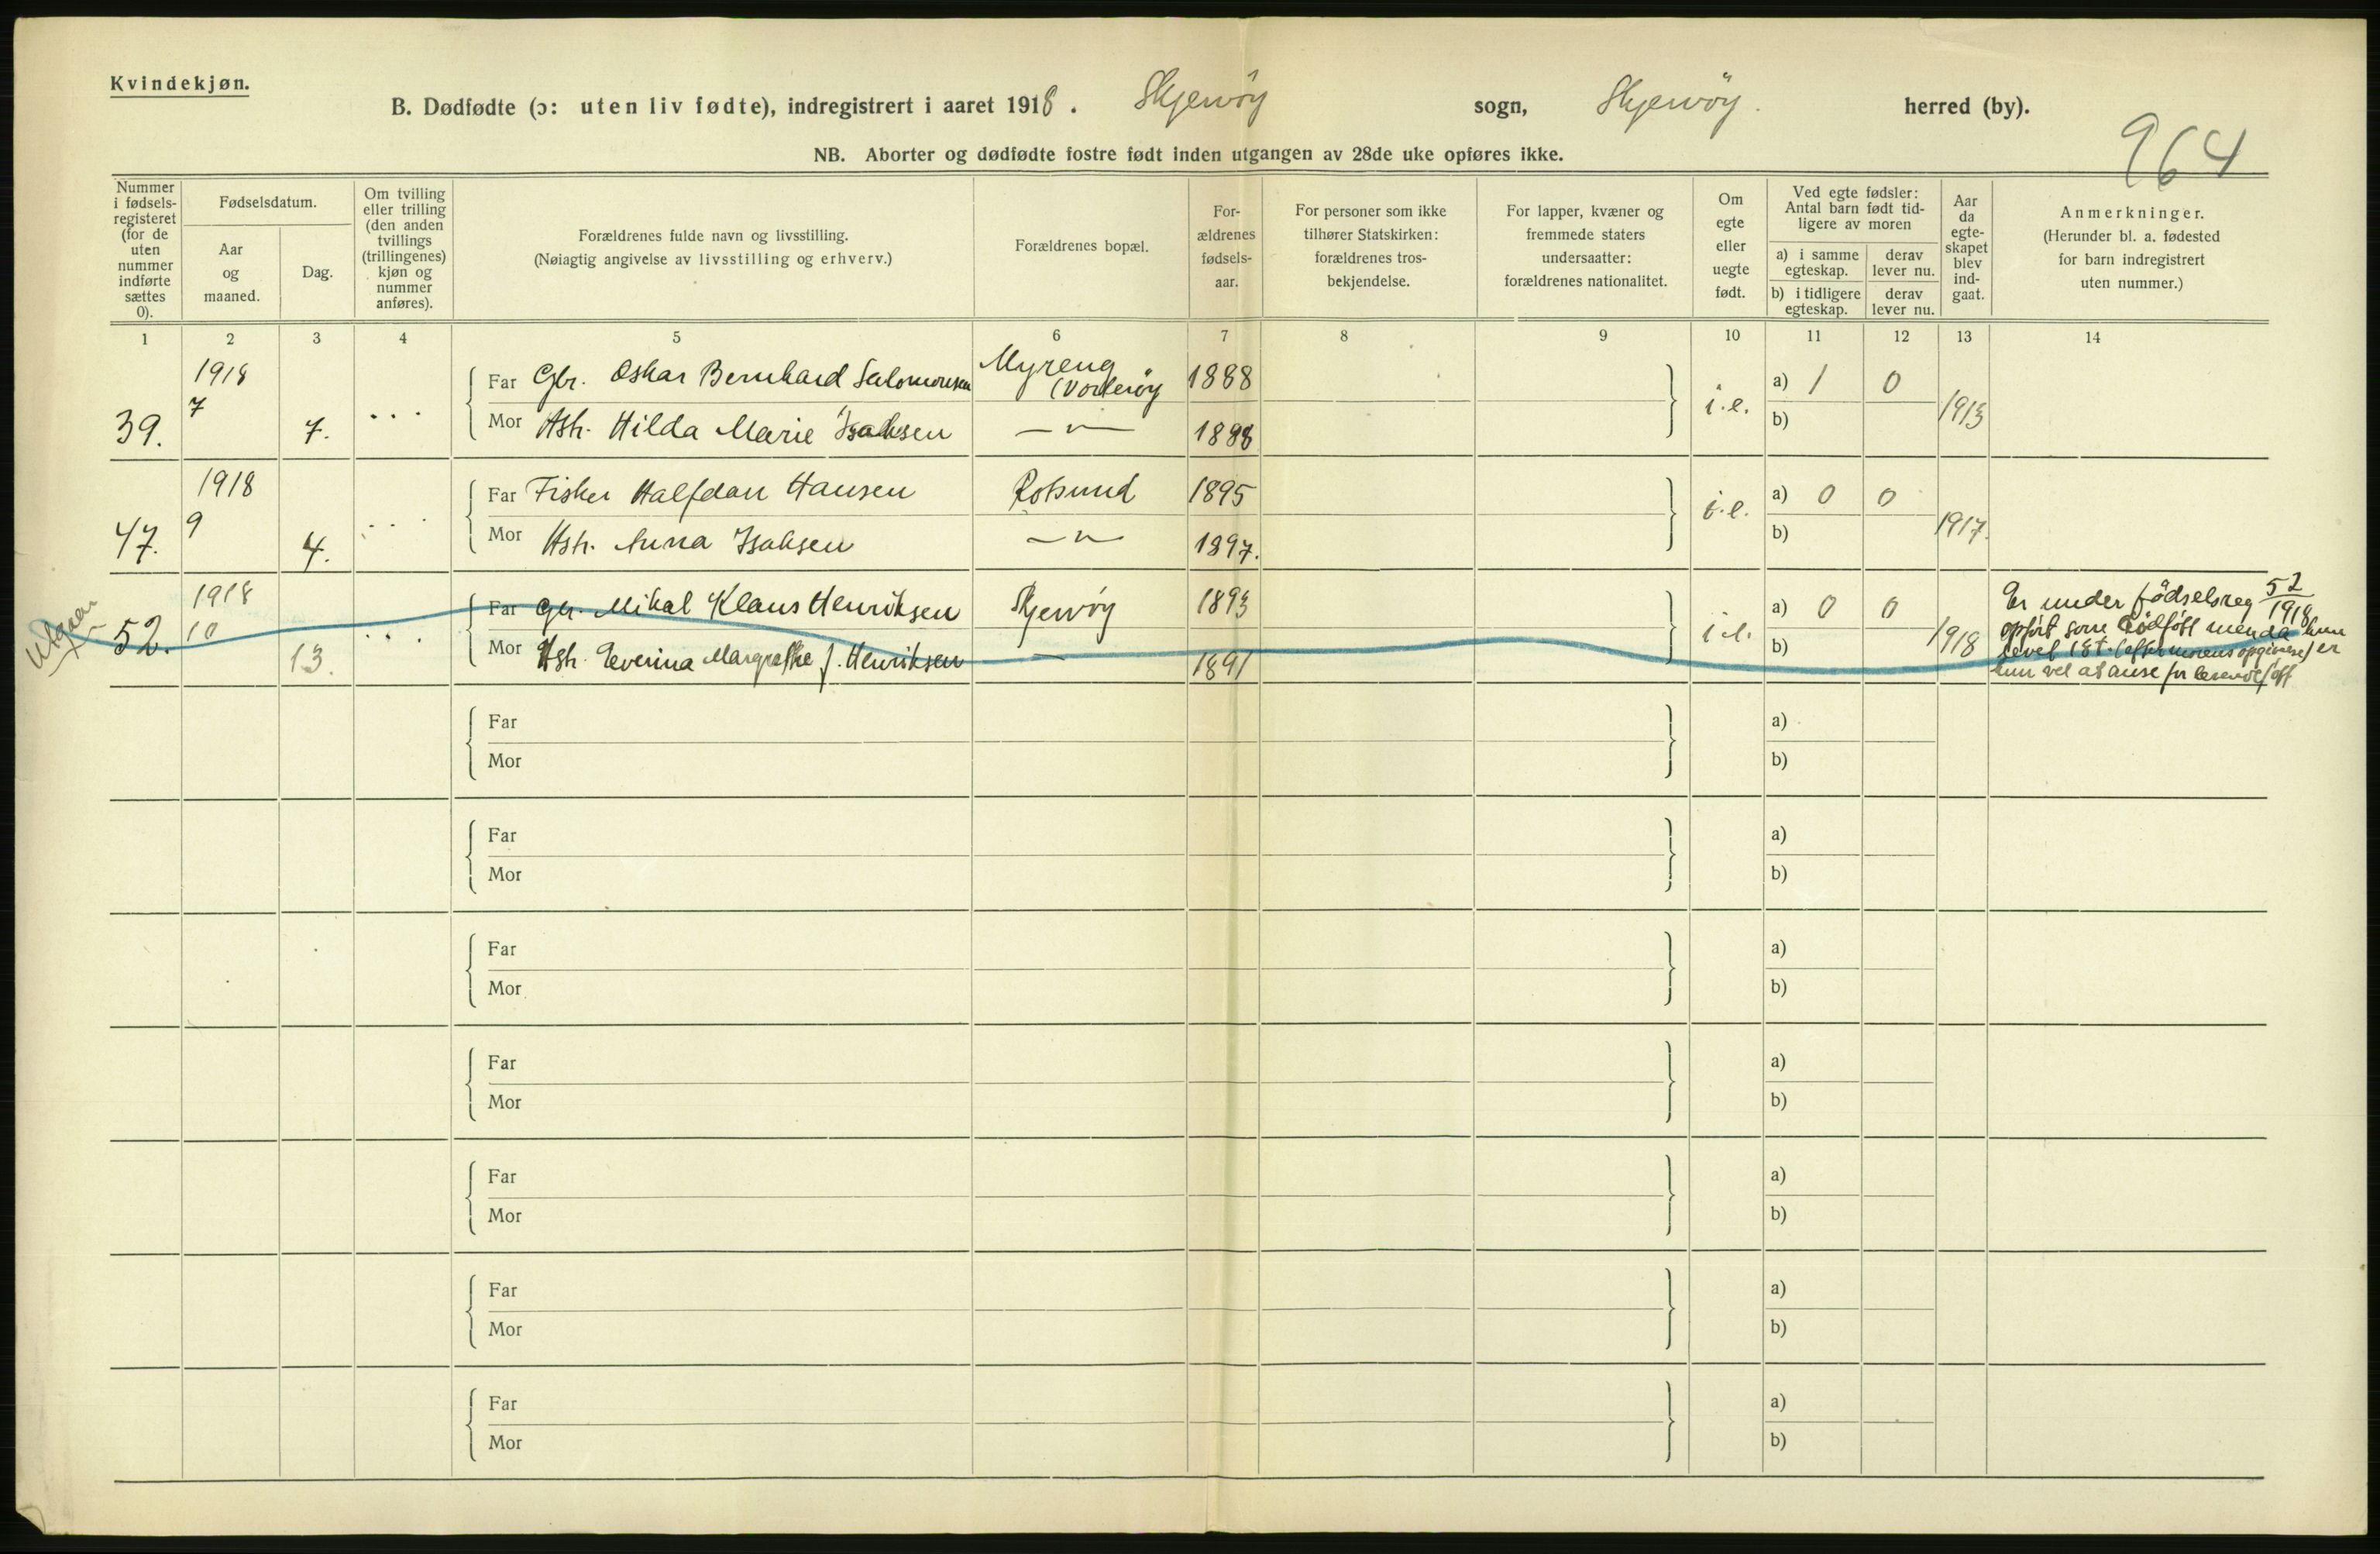 Kvindekjøn.
B. Dødfødte (ɔ: uten liv fødte), indregistrert i aaret 1918. Skjervøy sogn, Skjervøy. herred (by).
964
NB. Aborter og dødfødte fostre født inden utgangen av 28de uke opføres ikke.
Nummer i fødsels-registeret (for de uten nummer indførte sættes 0).
Fødselsdatum.
Aar og maaned.
Dag.
Om tvilling eller trilling (den anden tvillings (trillingenes) kjøn og nummer anføres).
Forældrenes fulde navn og livsstilling.
(Nøiagtig angivelse av livsstilling og erhverv.)
Forældrenes bopæl.
For-ældrenes fødsels-aar.
For personer som ikke tilhører Statskirken: forældrenes tros-bekjendelse.
For lapper, kvæner og fremmede staters undersaatter: forældrenes nationalitet.
Om egte eller uegte født.
Ved egte fødsler: Antal barn født tid-ligere av moren
a) i samme egteskap.
derav lever nu.
b) i tidligere egteskap.
derav lever nu.
Aar da egte-skapet blev ind-gaat.
Anmerkninger.
(Herunder bl. a. fødested for barn indregistrert uten nummer.)
1 2 3 4 5 6 7 8 9 10 11 12 13 14
39. 1918 7 7. . . .
Far Gbr. Oskar Bernhard Salomonsen Myreng (Vorterøy 1888
Mor Hstr. Hilda Marie Isaksen —„— 1888
i.e. a) 1 0 b) 1913
47. 1918 9 4. . . .
Far Fisker Halfdan Hansen Rotsund 1895
Mor Hstr. Anna Isaksen —„— 1897.
i.e. a) 0 0 b) 1917.
Utgaar
52. 1918 10 13. . . .
Far Gbr. Mikal Klaus Henriksen Skjervøy 1893
Mor Hstr. Severina Margrethe f. Henriksen — 1891
i.e. a) 0 0 b) 1918
Er under fødselsreg 52/1918
opført som dødfødt men da hun
levet 18 t. (efter morens opgivese) er
hun vel at anse for levende født
Far a)
Mor b)
Far a)
Mor b)
Far a)
Mor b)
Far a)
Mor b)
Far a)
Mor b)
Far a)
Mor b)
Far a)
Mor b)